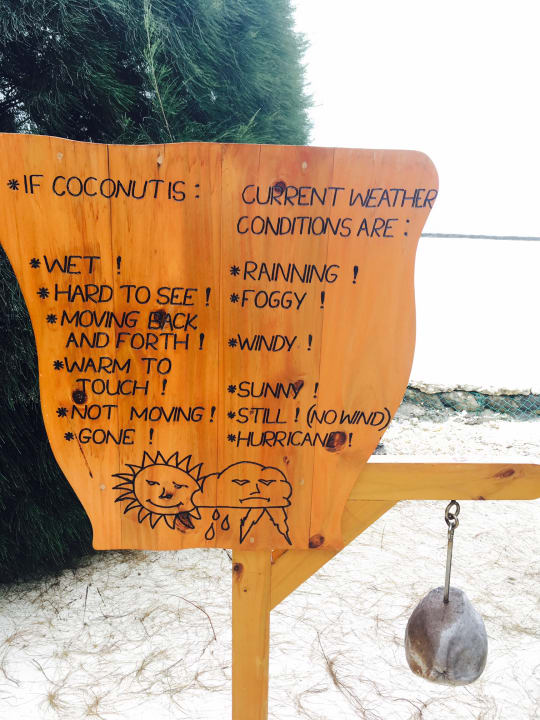 *IF COCONUT IS :
CURRENT WEATHER
CONDITIONS ARE :
*WET !
*RAINNING !
*HARD TO SEE !
*FOGGY !
*MOVING BACK
AND FORTH !
*WINDY !
*WARM TO
TOUCH !
*SUNNY !
*NOT MOVING !
*STILL ! (NO WIND)
*GONE !
*HURRICANE !